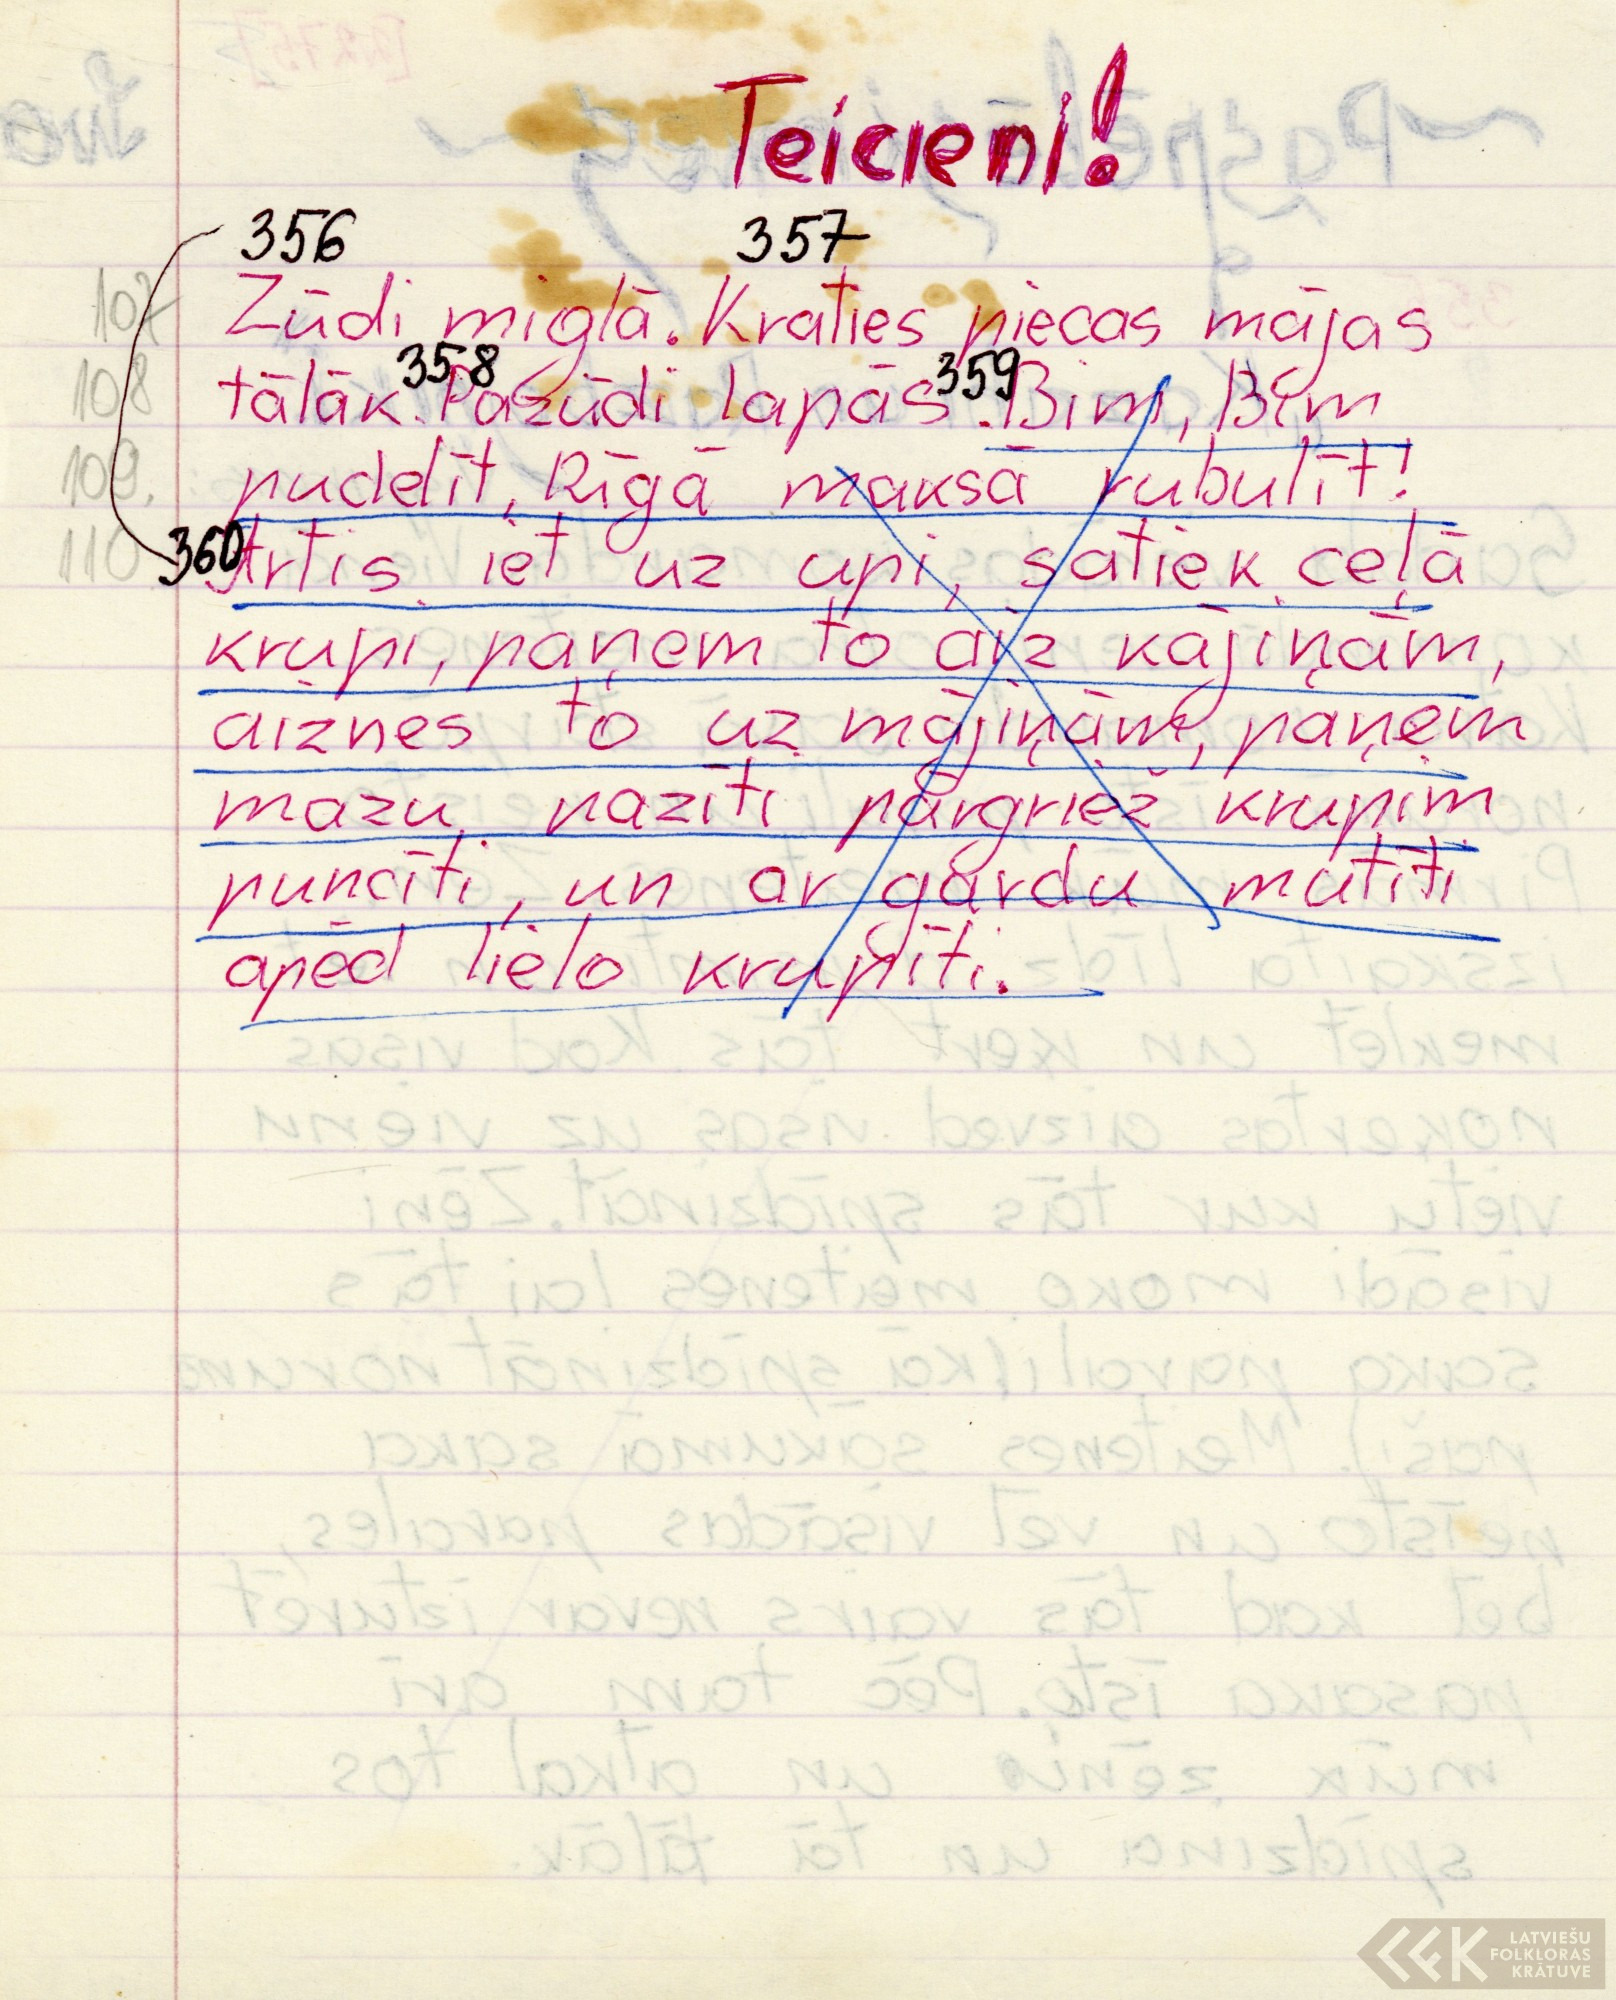 Teicieni!
356 357
107 Zūdi miglā. Kraties piecas mājas
108 tālāk. 358 Pazūdi lapās. 359 Bim, Bim
109. pudelīt, Rīgā maksā rubulīt!
110 360 Artis iet uz upi, satiek ceļā
krupi, paņem to aiz kājiņām,
aiznes to uz mājiņām, paņem
mazu nazīti pārgriež krupim
puncīti, un ar gardu mutīti
apēd lielo krupīti.
LATVIEŠU
FOLKLORAS
KRĀTUVE